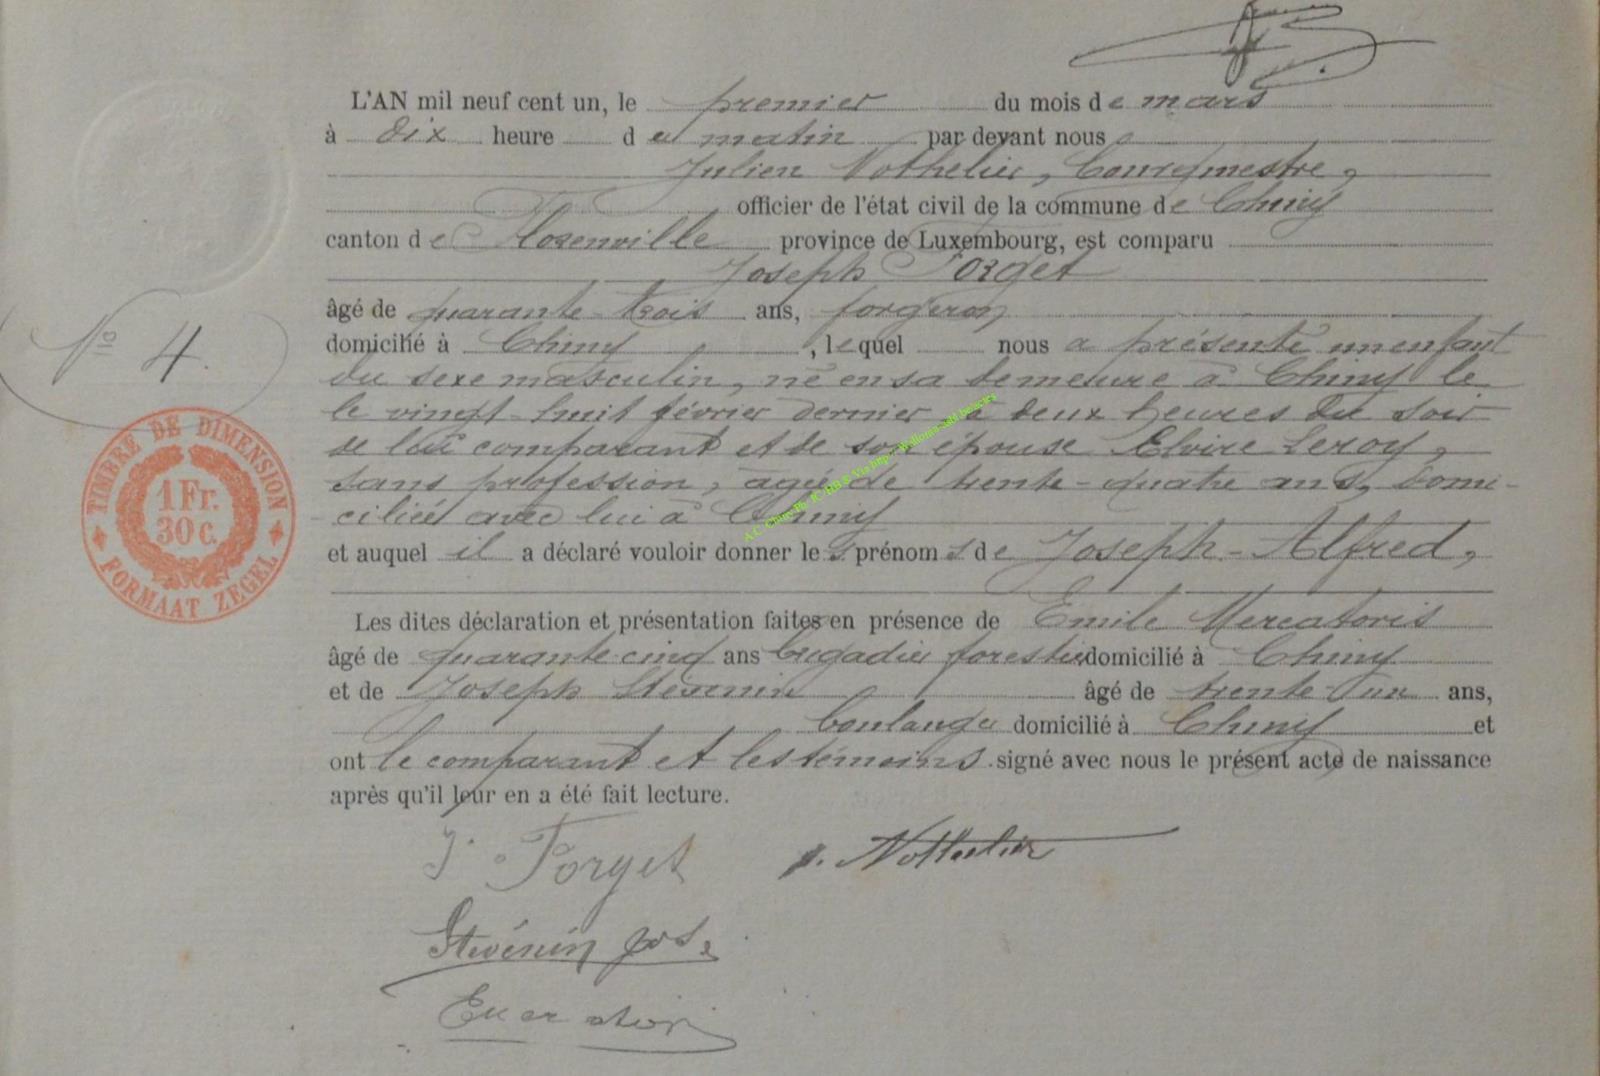 L'AN mil neuf cent un, le premier du mois de mars
à dix heure du matin par devant nous
Julien Nothelier, bourgmestre,
officier de l'état civil de la commune de Chiny
canton de Florenville province de Luxembourg, est comparu
Joseph Forget
âgé de quarante-trois ans, forgeron
domicilié à Chiny, lequel nous a présenté un enfant
du sexe masculin, né en sa demeure à Chiny le
le vingt-huit février dernier à deux heures du soir
de lui comparant et de son épouse Elvire Leroy,
sans profession, agée de trente-quatre ans, domi-
ciliée avec lui à Chiny
et auquel il a déclaré vouloir donner les prénoms de Joseph-Alfred,
Les dites déclaration et présentation faites en présence de Emile Mercatoris
âgé de quarante cinq ans brigadier forestier domicilié à Chiny
et de Joseph Stévenin âgé de trente-un ans,
boulanger domicilié à Chiny et
ont le comparant et les témoins signé avec nous le présent acte de naissance
après qu'il leur en a été fait lecture.
N° 4.
TIMBRE DE DIMENSION
1 Fr.
30 c.
FORMAAT ZEGEL
J. Forget
J. Nothelier
Stévenin Jos